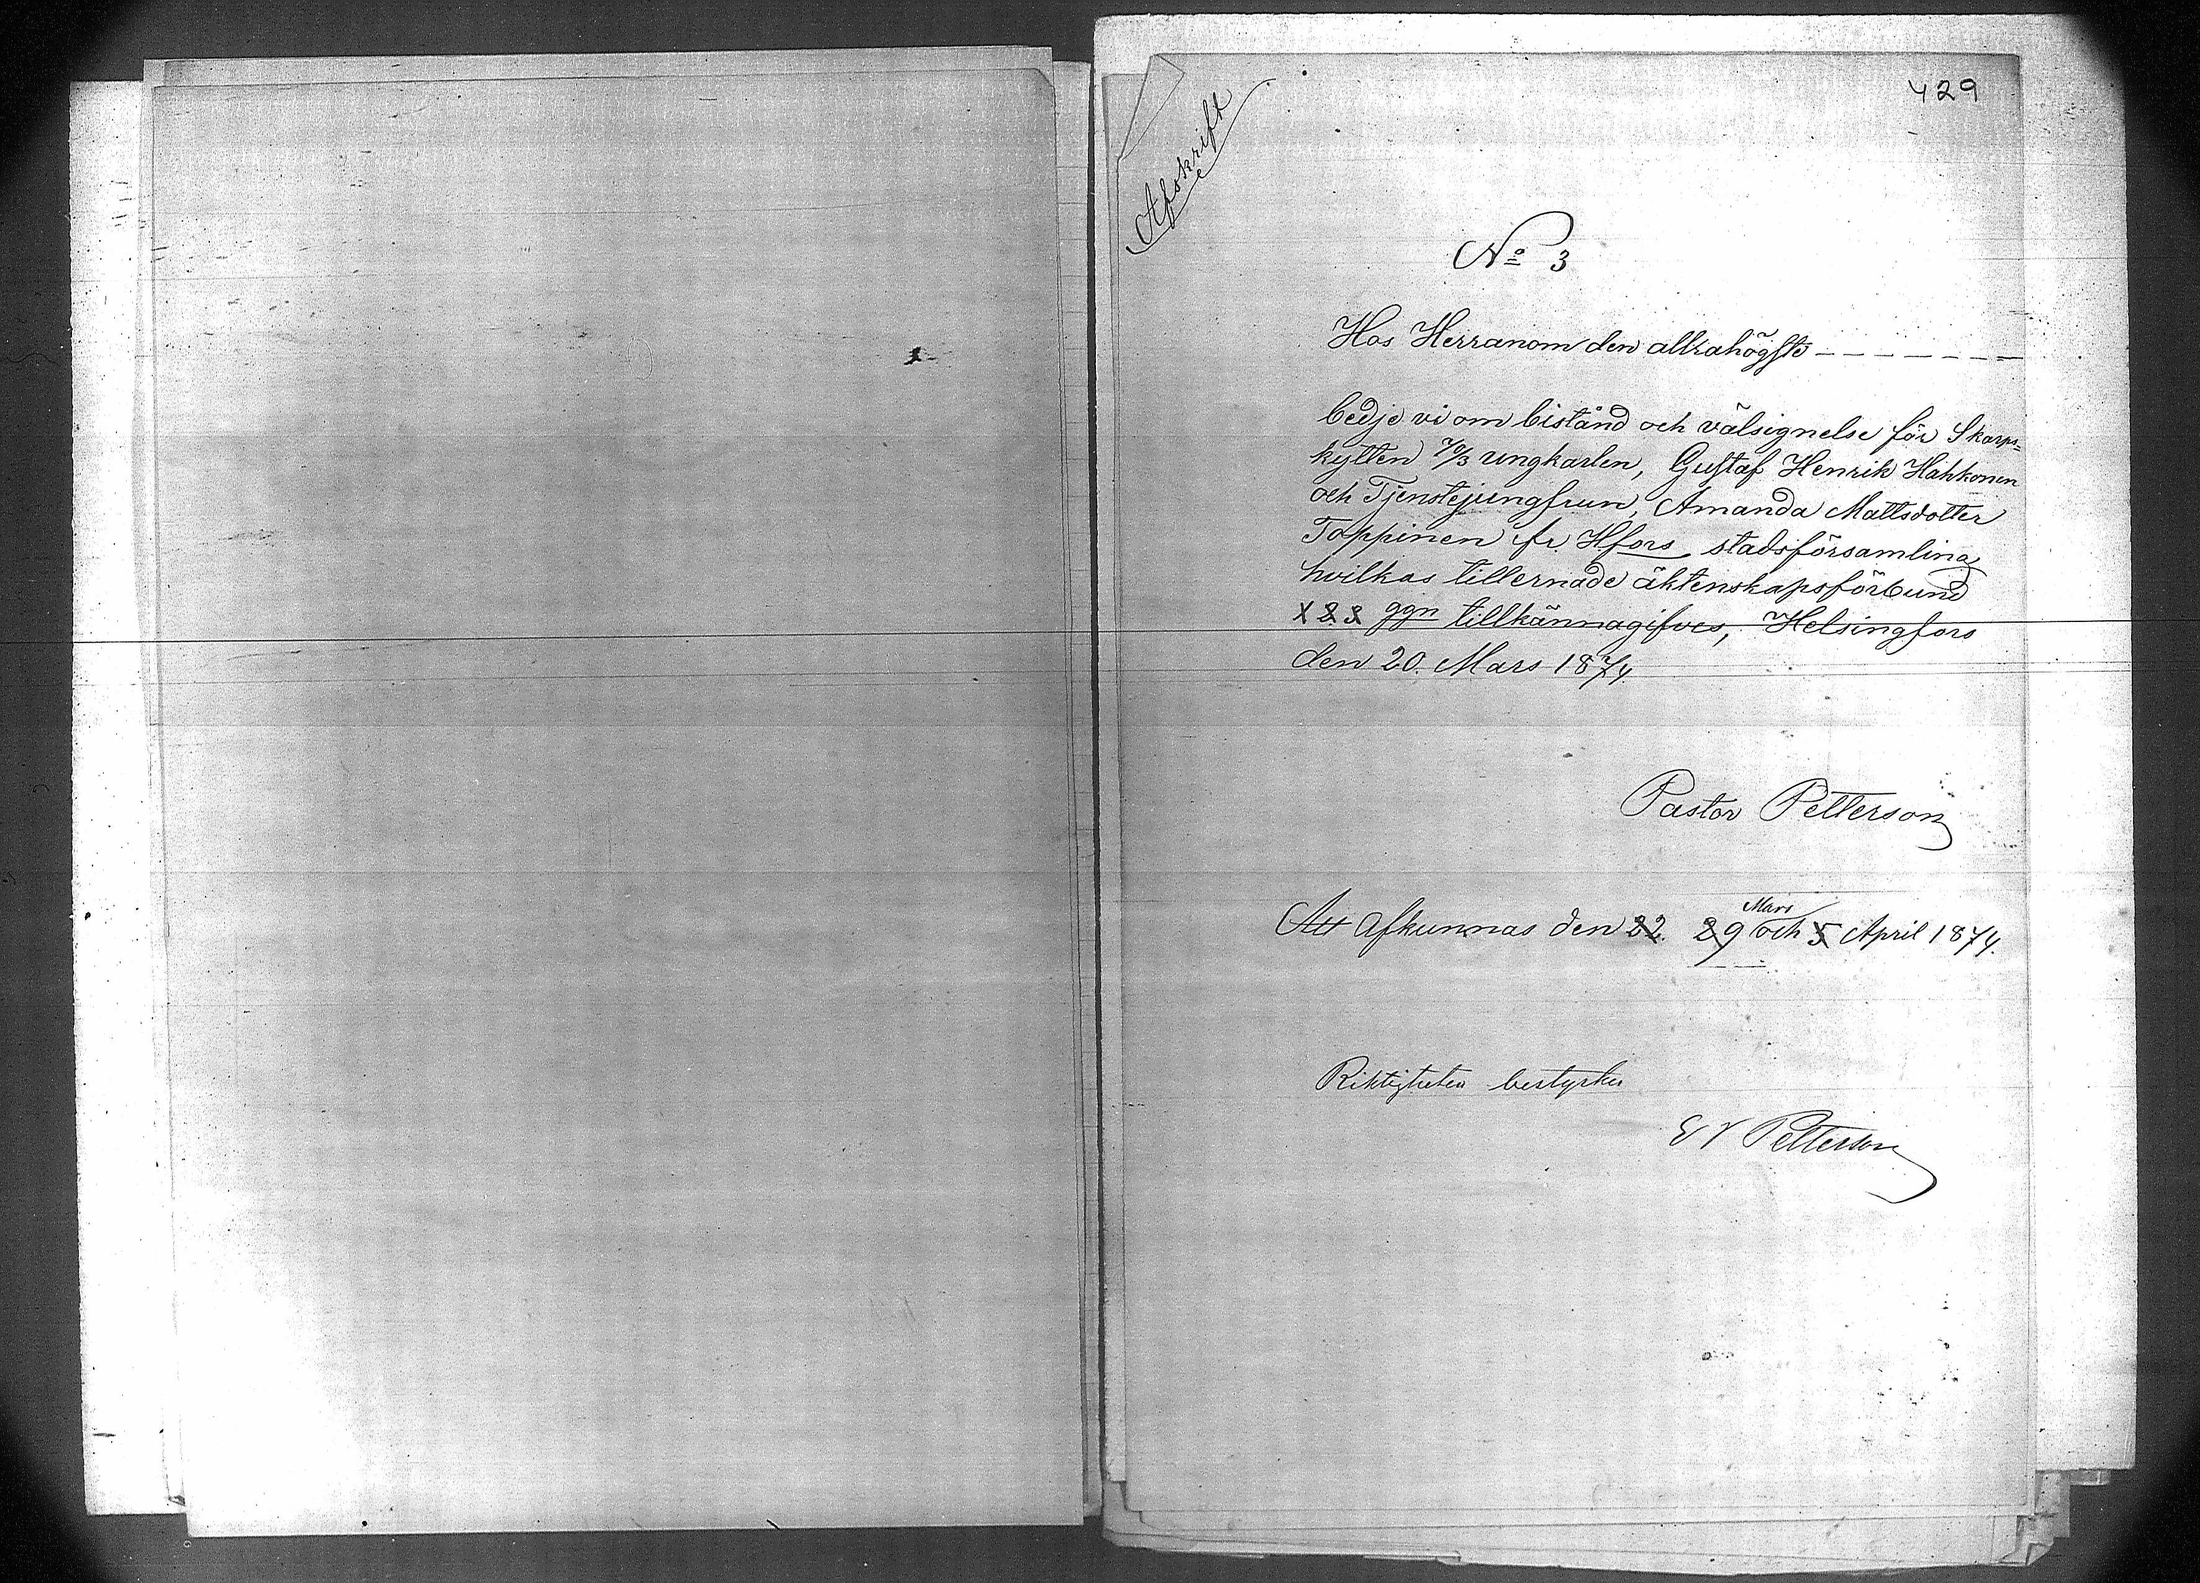 429
Afskrift
No 3
Hos Herranom den allrahögste
bedje vi om bistånd och välsignelse för Skarps=
kytten 70/3 ungkarlen, Gustaf Henrik Hahkonen
och Tjenstejungfrun, Amanda Mattsdotter
Toppinen fr. Hfors stadsförsamling
hvilkas tillernade äktenskapsförbund
1 2 3 ggn tillkännagifves, Helsingfors
den 20. Mars 1874.
Pastor Petterson
Att afkunnas den 22. 29 Mars och 5 April 1874.
Riktigheten bestyrker
Petterson